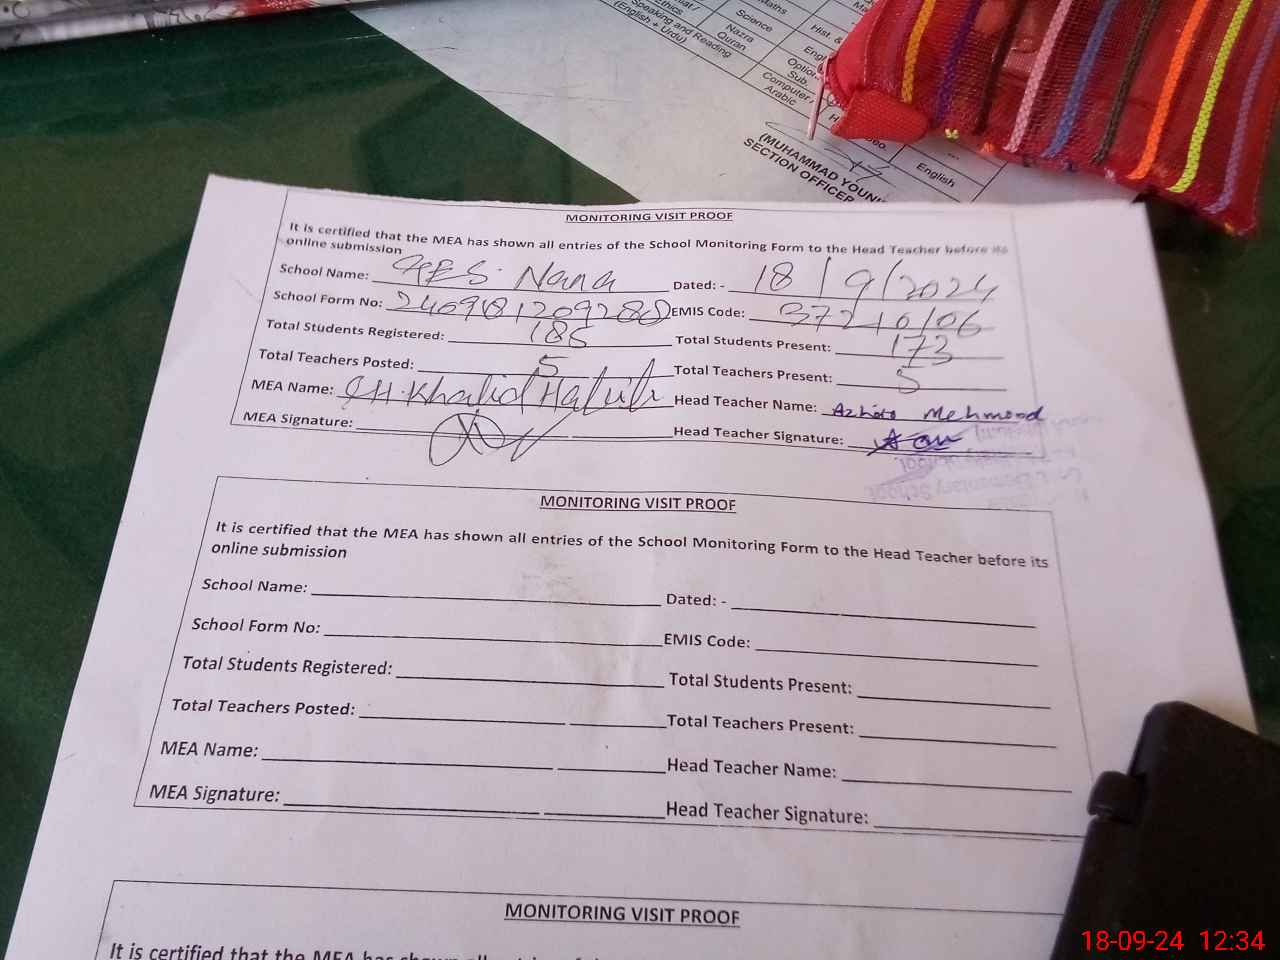 Maths
Science
Ethics
Nazra
Quran
Speaking and Reading
(English + Urdu)
Hist. &
Sub.
Computer /
Arabic
English
(MUHAMMAD YOUN
SECTION OFFICER
MONITORING VISIT PROOF
It is certified that the MEA has shown all entries of the School Monitoring Form to the Head Teacher before its
online submission
School Name: GES. Nana Dated: - 18/9/2024
School Form No: EMIS Code: 37210106
Total Students Registered: 185 Total Students Present: 173
Total Teachers Posted: 5 Total Teachers Present: 5
MEA Name: CH. Khalid Habib Head Teacher Name: Mehmood
MEA Signature: Head Teacher Signature:
Elementary School
MONITORING VISIT PROOF
It is certified that the MEA has shown all entries of the School Monitoring Form to the Head Teacher before its
online submission
School Name: Dated: -
School Form No: EMIS Code:
Total Students Registered: Total Students Present:
Total Teachers Posted: Total Teachers Present:
MEA Name: Head Teacher Name:
MEA Signature: Head Teacher Signature:
MONITORING VISIT PROOF
It is certified that the MEA has shown all entries of the
18-09-24 12:34